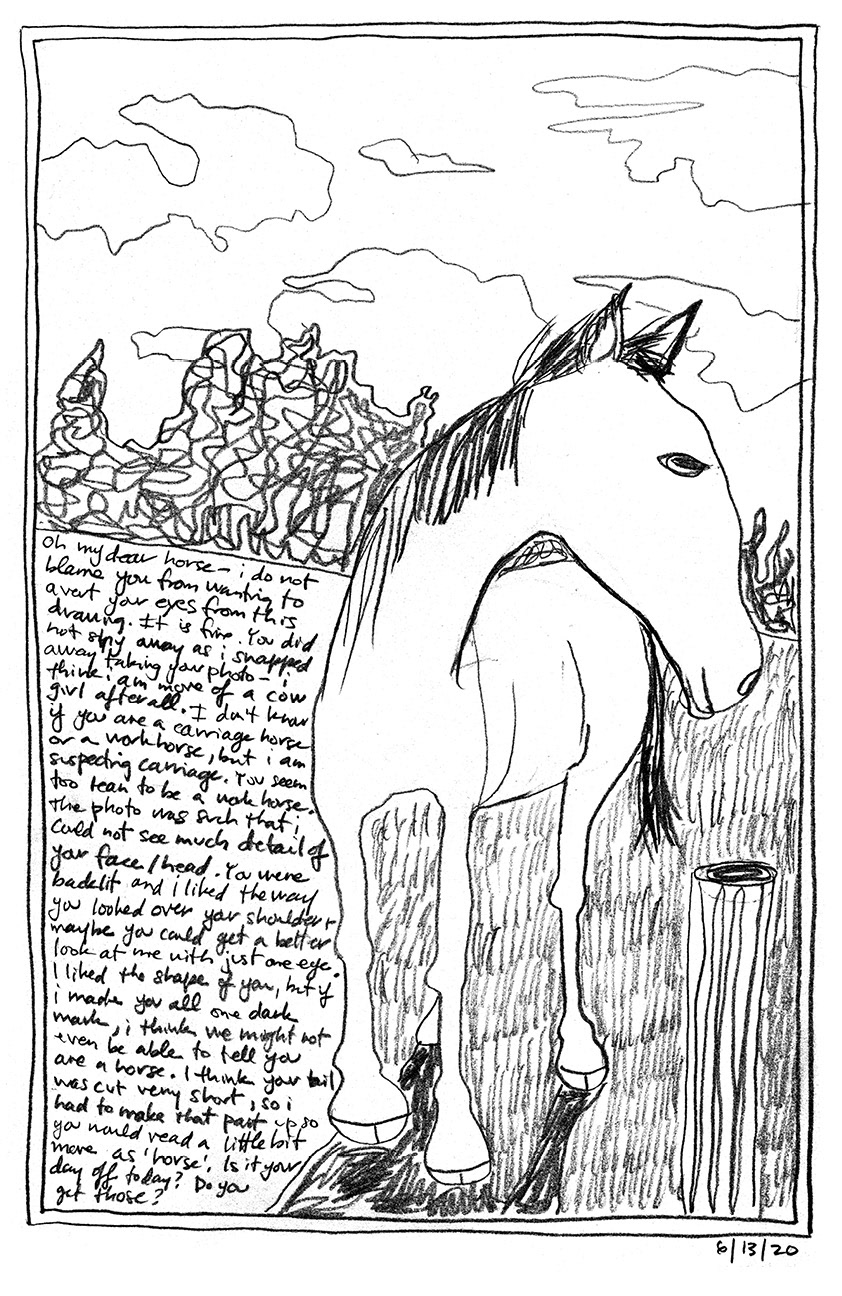 Oh my dear horse - i do not
blame you from wanting to
avert your eyes from this
drawing. It is fine. You did
not shy away as i snapped
away taking your photo - i
think i am more of a cow
girl after all. I don't know
if you are a carriage horse
or a workhorse, but i am
suspecting carriage. You seem
too lean to be a work horse.
The photo was such that i
could not see much detail of
your face/head. You were
backlit and i liked the way
you looked over your shoulder +
maybe you could get a better
look at me with just one eye.
I liked the shape of you, but if
i made you all one dark
mark, i think we might not
even be able to tell you
are a horse. I think your tail
was cut very short, so i
had to make that part up so
you would read a little bit
more as 'horse'. Is it your
day off today? Do you
get those?
6/13/20